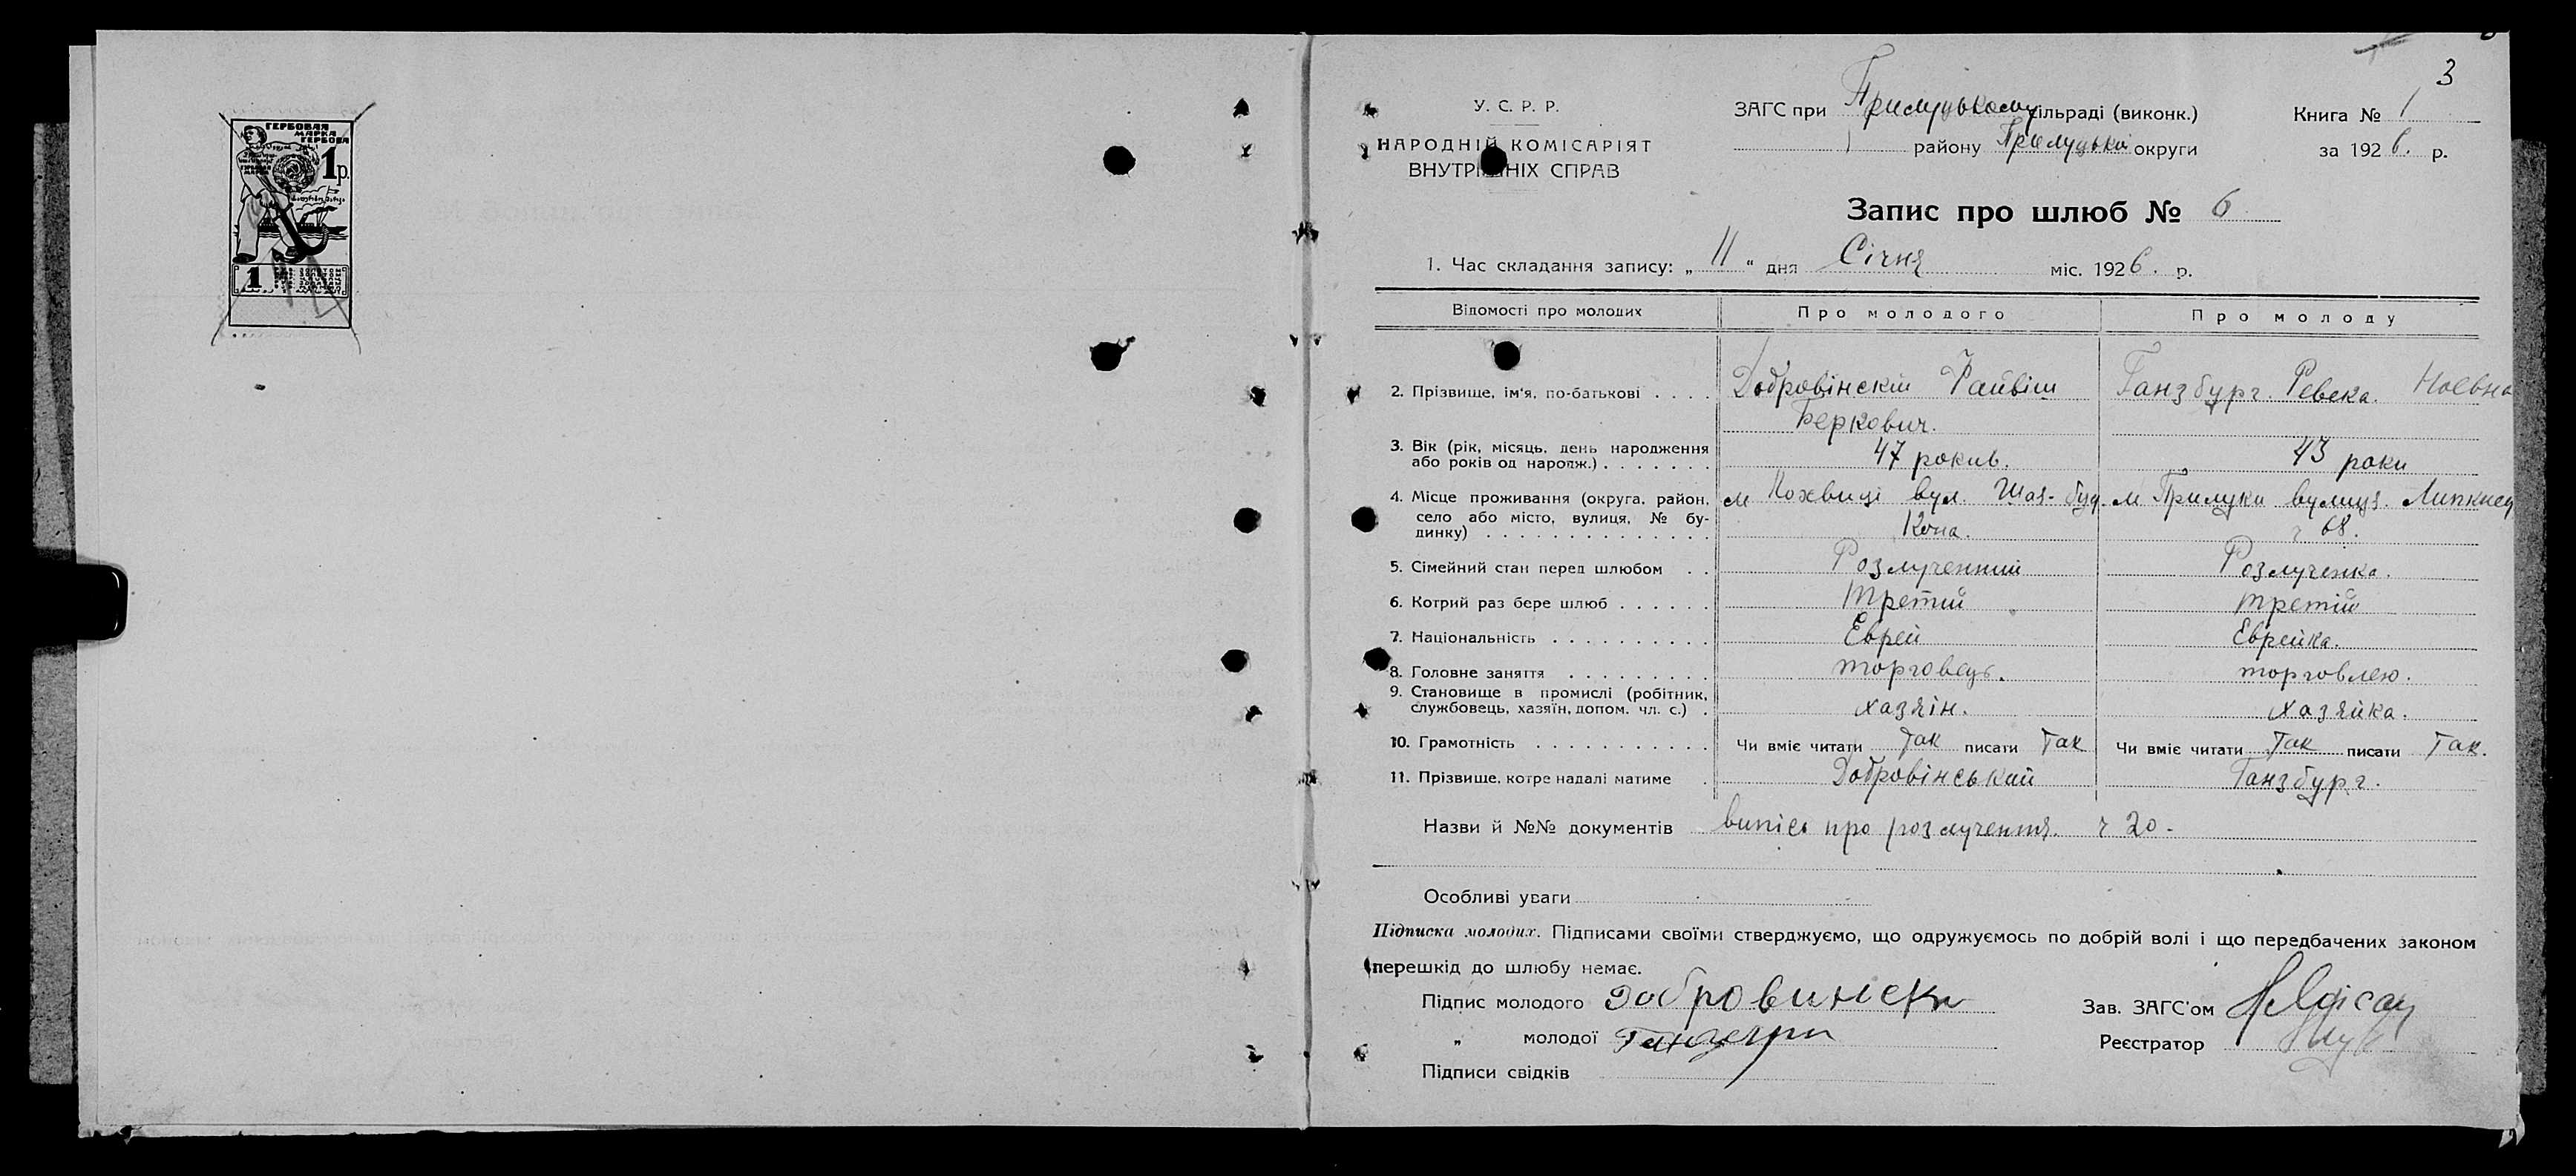 ГЕРБОВАЯ
МАРКА
ГЕРБОВА
1р.
1
3
У. С. Р. Р.
НАРОДНІЙ КОМІСАРІЯТ
ВНУТРІШНІХ СПРАВ
ЗАГС при Прилуцькому сільраді (виконк.)
району Прилуцькій округи
Книга № 1
за 1926. р.
Запис про шлюб № 6
1. Час складання запису: „ 11 " дня Січня міс. 1926. р.
Відомості про молодих Про молодого Про молоду
2. Прізвище, ім'я, по-батькові . . . . Добровінский Файвіш Ганзбург Ревека Ноевна
Беркович.
3. Вік (рік, місяць, день народження
або років од народж.) . . . . . . . 47 років. 43 роки
4. Місце проживання (округа, район, м Лохвиці вул. Шаз-буд. м Прилуки вулиця
село або місто, вулиця, № бу-
динку) . . . . . . . . . . . . . . Кона. 68.
5. Сімейний стан перед шлюбом . . Розлученний Розлученка.
6. Котрий раз бере шлюб . . . . . . третий третій
7. Національність . . . . . . . . . . Еврей Еврейка.
8. Головне заняття . . . . . . . . . торговець. торговлею.
9. Становище в промислі (робітник,
службовець, хазяїн, допом. чл. с.) . хазяін. хазяйка.
10. Грамотність . . . . . . . . . . . Чи вміє читати Так писати Так Чи вміє читати Так писати Так.
11. Прізвище, котре надалі матиме . Добровінський Ганзбург.
Назви й №№ документів випісь про розлучення ч 20.
Особливі уваги
Підписка молодих. Підписами своїми стверджуємо, що одружуємось по добрій волі і що передбачених законом
перешкід до шлюбу немає.
Підпис молодого Добровински
Зав. ЗАГС'ом
„ молодої
Реєстратор
Підписи свідків